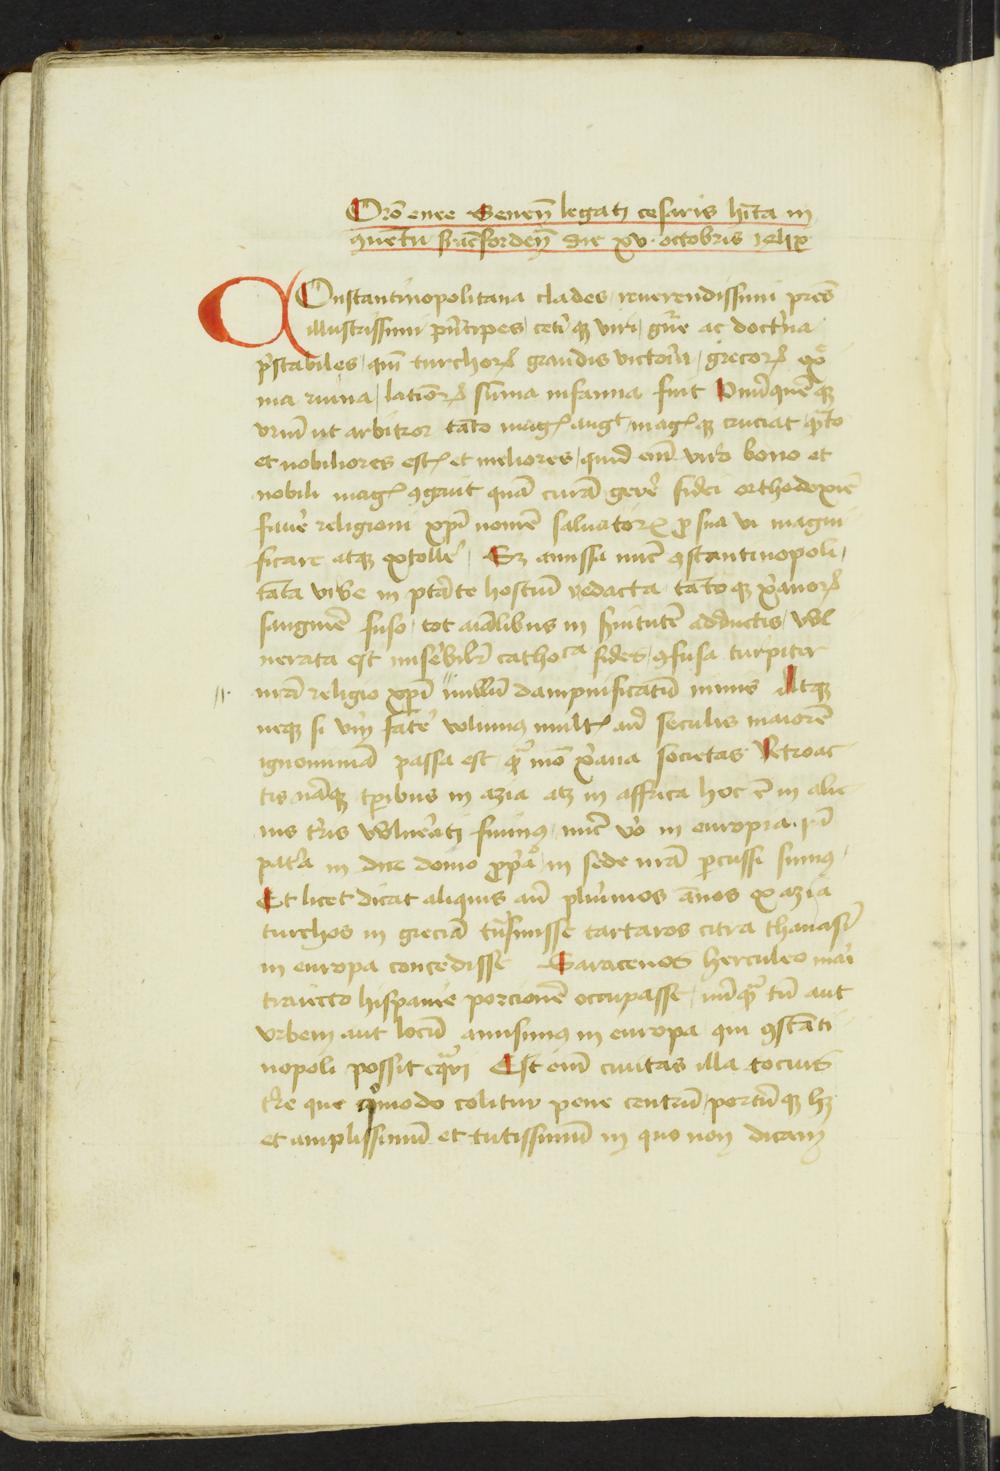 Oro͂ enee Senen̄ legati cesaris hīta in
ꝯuētu francforden̄ die xv octobris 1454
Constantinopolitana clades, reuerendissimi prēs
illustrissimi prīcipes, ceteriqꝫ viri, genere ac doctrina
prestabiles, qm̄ turchorꝭ grandis victoria, grecorꝭ extre
ma ruina, latinorꝭ sūma infamia fuit Vnūquēqꝫ
vrm̄ ut arbitror tāto magꝭ angit magꝭqꝫ cruciat quāto
et nobiliores estꝭ et meliores, quid em̄ viro bono et
nobili magꝭ ꝯgruit quā curā gerere fidei orthodoxe
fauere religioni xp̄i nomē saluatorꝭ ꝓ sua vi magni
ficare atqꝫ extollere. Sꝫ amissa nūc ꝯstantinopoli,
tāta vrbe in ptāte hostiū redacta tātoqꝫ xp̄ianorꝭ
sanguinē fuso, tot aīabus in seruitutē adductis, vul
nerata est miserabilr̄ catholica fides, ꝯfusa turpiter
nrā religio xp̄i nimiū dampnificatū nimis Atqꝫ
neqꝫ si verum fateri volumus multꝭ ante seculis maiorē
ignominiā passa est quā modo xp̄iana societas Retroac
tis nāqꝫ tp̄ribus in azia atqꝫ in affrica hoc ē in alie
nis terris vulnerati fuimus, nūc vo in europa .i. in
patria in dīe domo propria in sede nrā percussi sumus,
Et licet dicat aliquis ante plurimos ānos ex azia
turchos in greciā transiuisse tartaros citra thanaim
in europa concedisse Saracenos herculeo mari
traiecto hispanie porcionē occupasse, nūquā tn̄ aut
vrbem aut locū amisimus in europa qui ꝯstāti
nopoli possit equari Est em̄ ciuitas illa tocius
terre que quomodo colitur pene centrū, portūqꝫ hꝫ
et amplissimū et tutissimū in quo non dicam